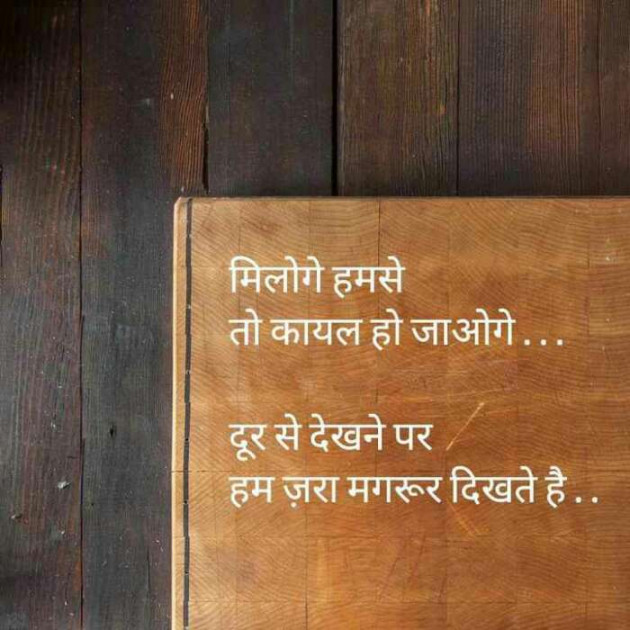 मिलोगे हमसे
तो कायल हो जाओगे...
दूर से देखने पर
हम ज़रा मगरूर दिखते है..